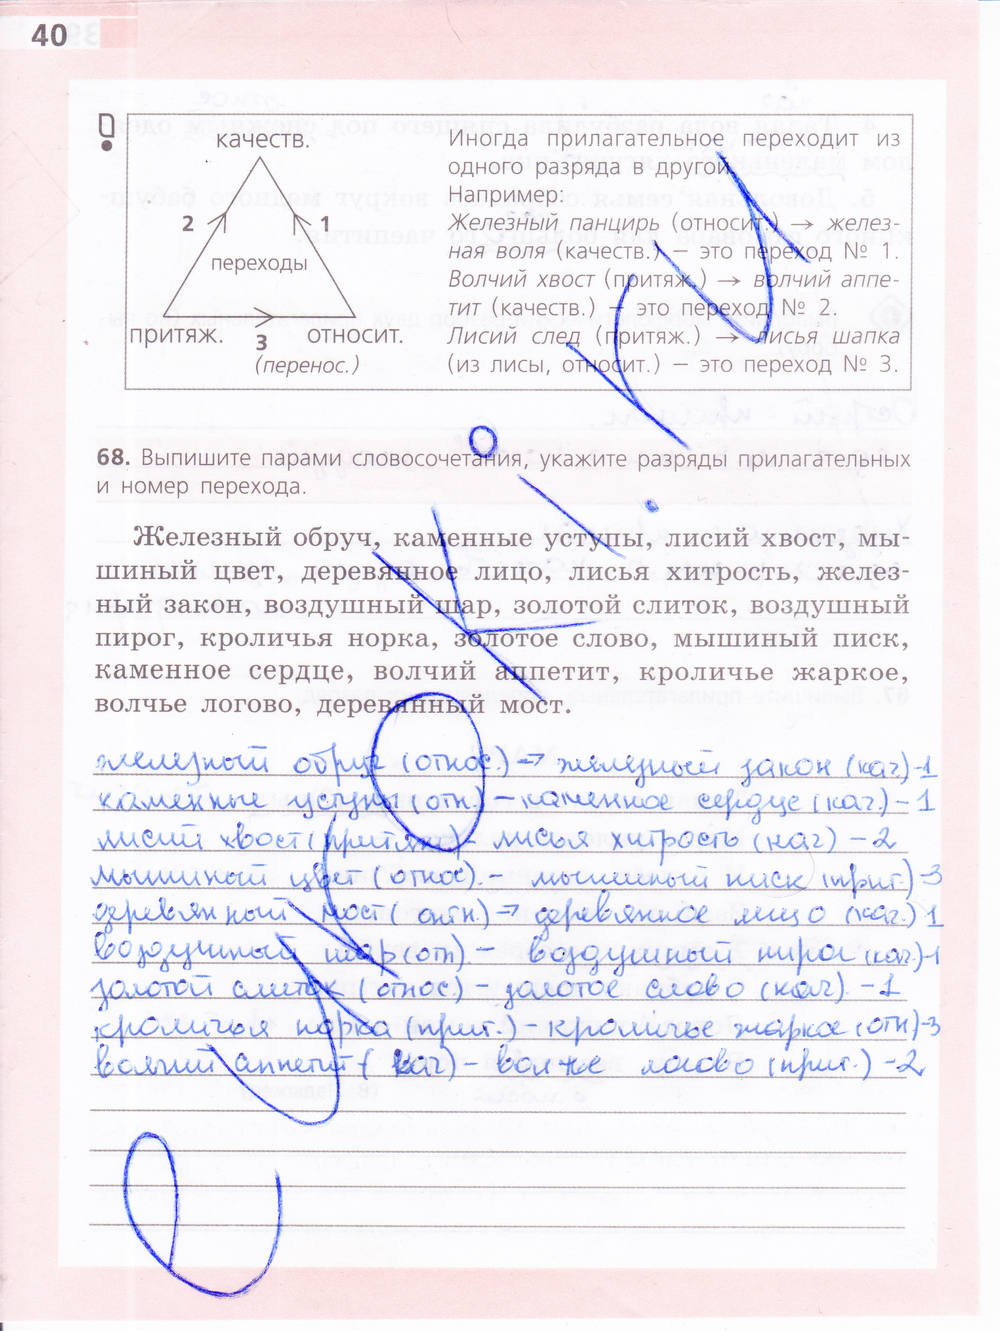 40
качеств.
2
1
переходы
притяж.
3
относит.
(перенос.)
Иногда прилагательное переходит из
одного разряда в другой.
Например:
Железный панцирь (относит.) → желез-
ная воля (качеств.) – это переход № 1.
Волчий хвост (притяж.) → волчий аппе-
тит (качеств.) – это переход № 2.
Лисий след (притяж.) → лисья шапка
(из лисы, относит.) – это переход № 3.
68. Выпишите парами словосочетания, укажите разряды прилагательных
и номер перехода.
Железный обруч, каменные уступы, лисий хвост, мы-
шиный цвет, деревянное лицо, лисья хитрость, желез-
ный закон, воздушный шар, золотой слиток, воздушный
пирог, кроличья норка, золотое слово, мышиный писк,
каменное сердце, волчий аппетит, кроличье жаркое,
волчье логово, деревянный мост.
железный обруч (относ.) → железный закон (кач) -1
каменные уступы (отн.) – каменное сердце (кач.) – 1
лисий хвост (притяж) – лисья хитрость (кач) – 2
мышиный цвет (относ). – мышиный писк (прит.) -3
деревянный мост (отн.) → деревянное лицо (кач.) -1
воздушный шар (отн) – воздушный пирог (кач.) -1
золотой слиток (относ.) – золотое слово (кач) – 1
кроличья норка (прит.) – кроличье жаркое (отн) -3
волчий аппетит (кач) – волчье логово (прит.) – 2